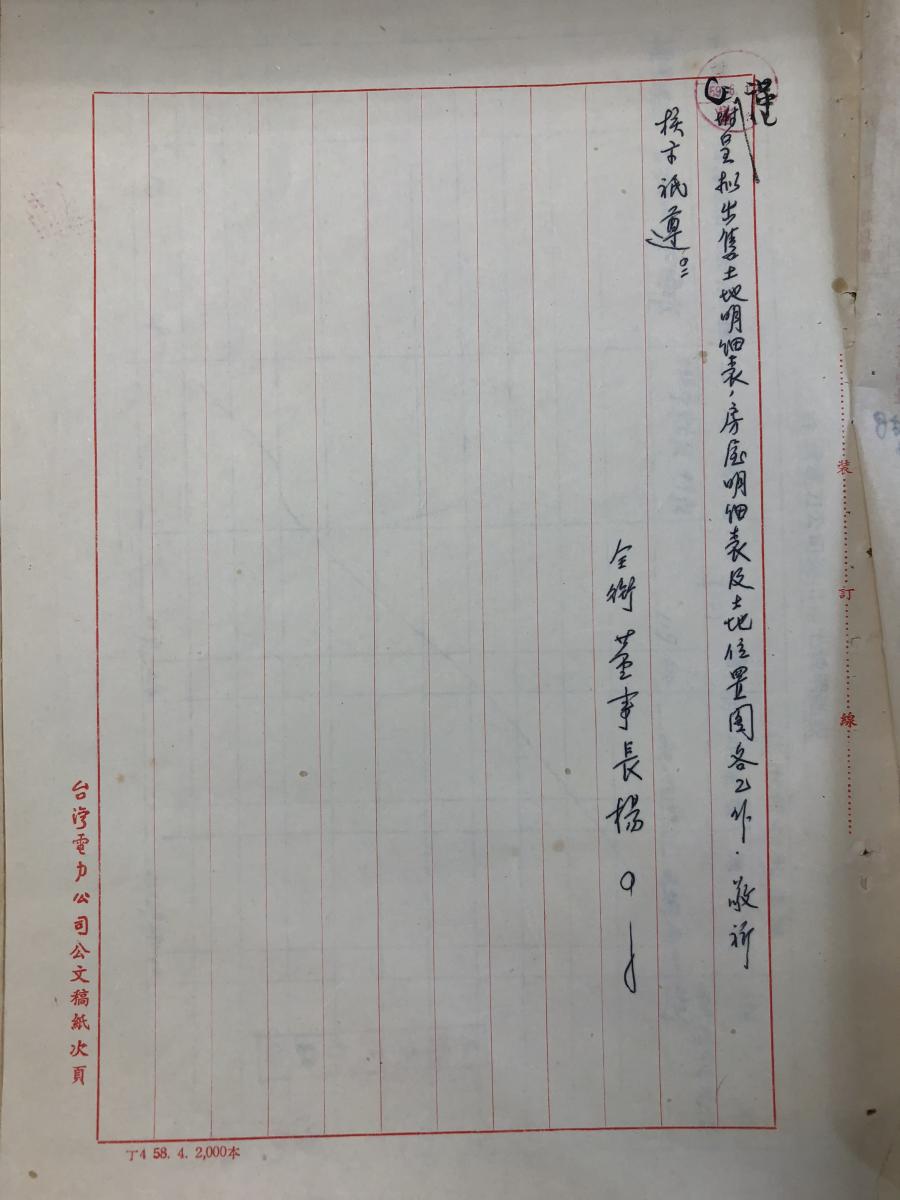 謹
附呈拟出售土地明细表，房屋明细表及土地位置圖各乙份．敬祈
核示祇遵。
全銜 董事長楊
裝 訂 線
台灣電力公司公文稿紙次頁
丁4 58. 4. 2,000本